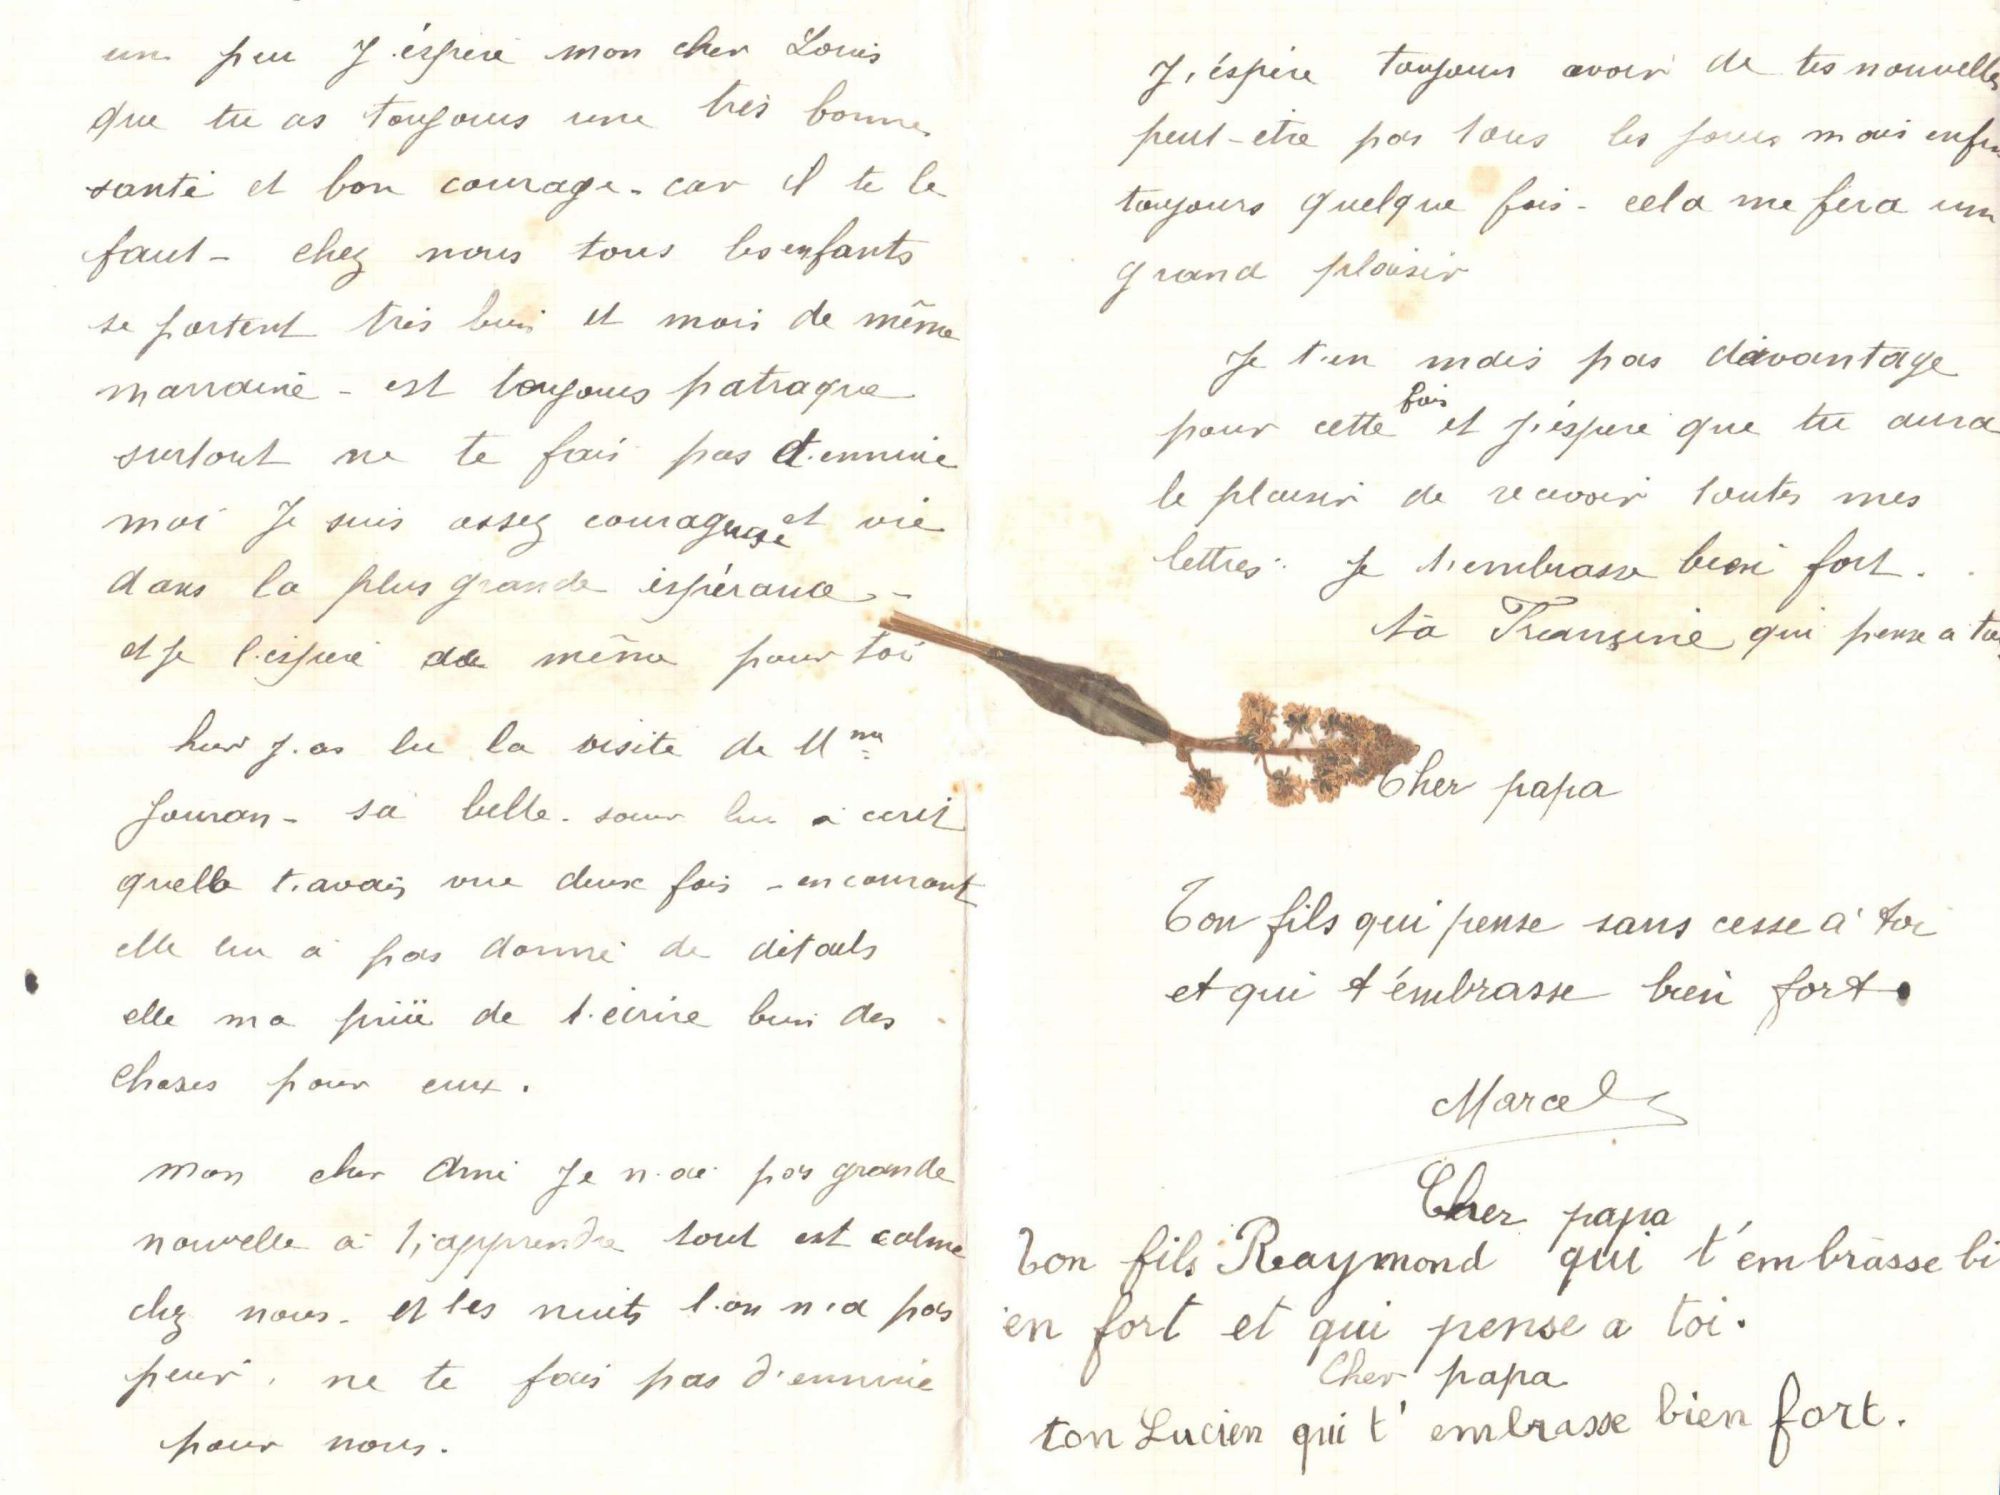 un peu J'éspère mon cher Louis
que tu as toujours une très bonne
santé et bon courage - car il te le
faut - chez nous tous les enfants
se portent très bien et mois de même
marraine - est toujours patraque
surtout ne te fais pas d'ennuie
moi Je suis assez courageuse et vie
dans la plus grande espérance -
et Je l'espère de même pour toi
hier J'ai eu la visite de Mme
Jouran - sa belle-sœur lui a écrit
quelle t'avais vue deux fois - en courant
elle lui a pas donné de détails
elle ma priiè de t'écrire bien des
choses pour eux.
mon cher Ami Je n'ai pas grande
nouvelle a t'apprendre tout est calme
chez nous - et les nuits l'on n'a pas
peur. ne te fais pas d'ennuie
pour nous.
J'éspère toujours avoir de tes nouvelles
peut-etre pas tous les jours mais enfin
toujours quelque fois - cela me fera un
grand plaisir
Je t'en mais pas davantage
pour cette fois et J'éspère que tu aura
le plaisir de recevoir toutes mes
lettres. Je t'embrasse bien fort.
ta Francine qui pense a toi
Cher papa
Ton fils qui pense sans cesse à toi
et qui t'émbrasse bien fort.
Marcel
Cher papa
Ton fils Raymond qui t'embrasse bi
en fort et qui pense a toi.
Cher papa
ton Lucien qui t'embrasse bien fort.